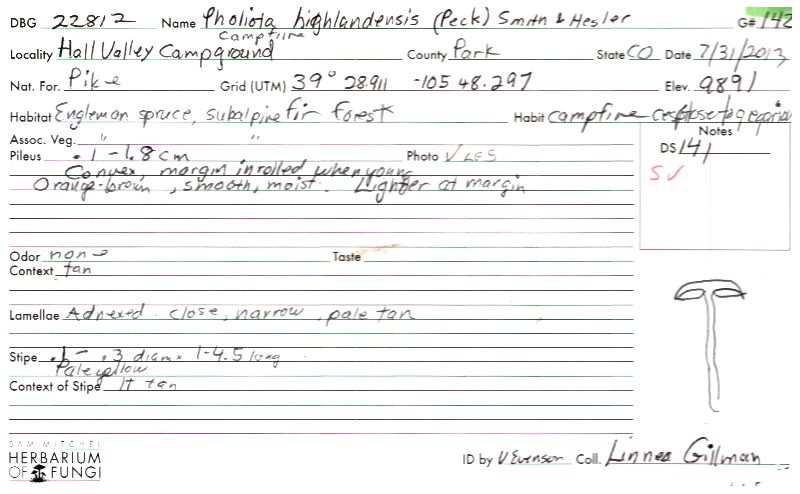 DBG 22812 Name Pholiota highlandensis (Peck) Smith & Hesler G# 142
campfire
Locality Hall Valley Campground County Park State CO Date 7/31/2013
Nat. For. Pike Grid (UTM) 39° 28.911 -105 48.297 Elev. 9891
Habitat Engleman spruce, subalpine fir forest Habit campfire
Assoc. Veg. " "
Notes
Pileus .1 - 1.8 cm Photo ✓ LES
DS 141
Convex, margin inrolled when young
SV
Orange-brown, smooth, moist. Lighter at margin
Odor none Taste
Context tan
Lamellae Adnexed. close, narrow, pale tan
Stipe .1 - .3 diam x 1-4.5 long
Pale yellow
Context of Stipe lt tan
SAM MITCHEL
HERBARIUM
OF FUNGI
ID by V Evenson Coll. Linnea Gillman